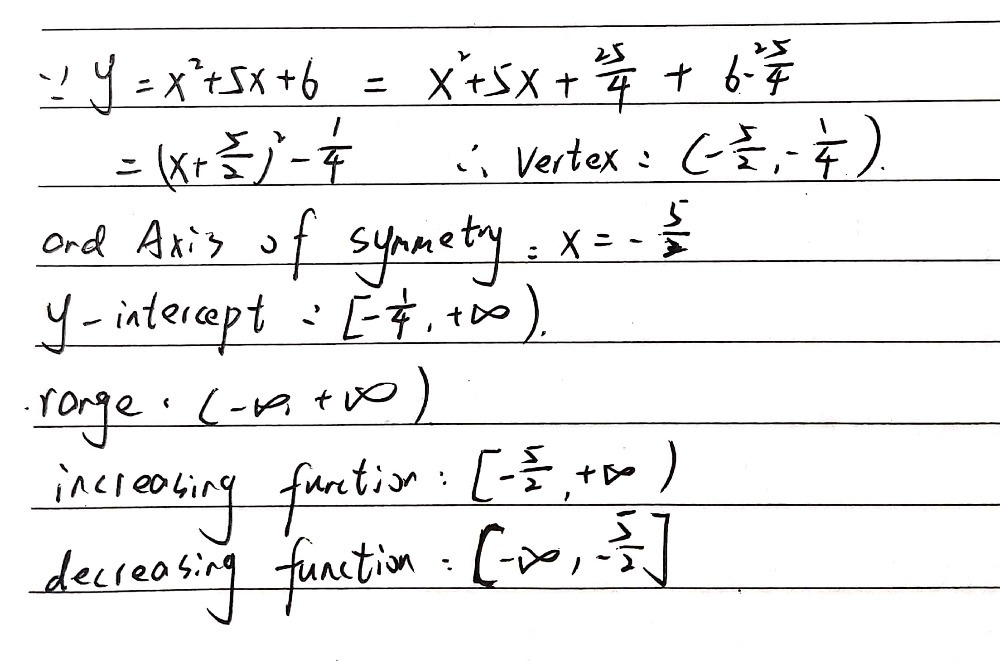 ∵ y = x²+5x+6 = x²+5x+25/4 + 6-25/4
= (x+5/2)² - 1/4 ∴ Vertex: (-5/2, -1/4).
and Axis of symmetry: x = -5/2
y-intercept: [-1/4, +∞).
range: (-∞, +∞)
increasing function: [-5/2, +∞)
decreasing function: [-∞, -5/2]